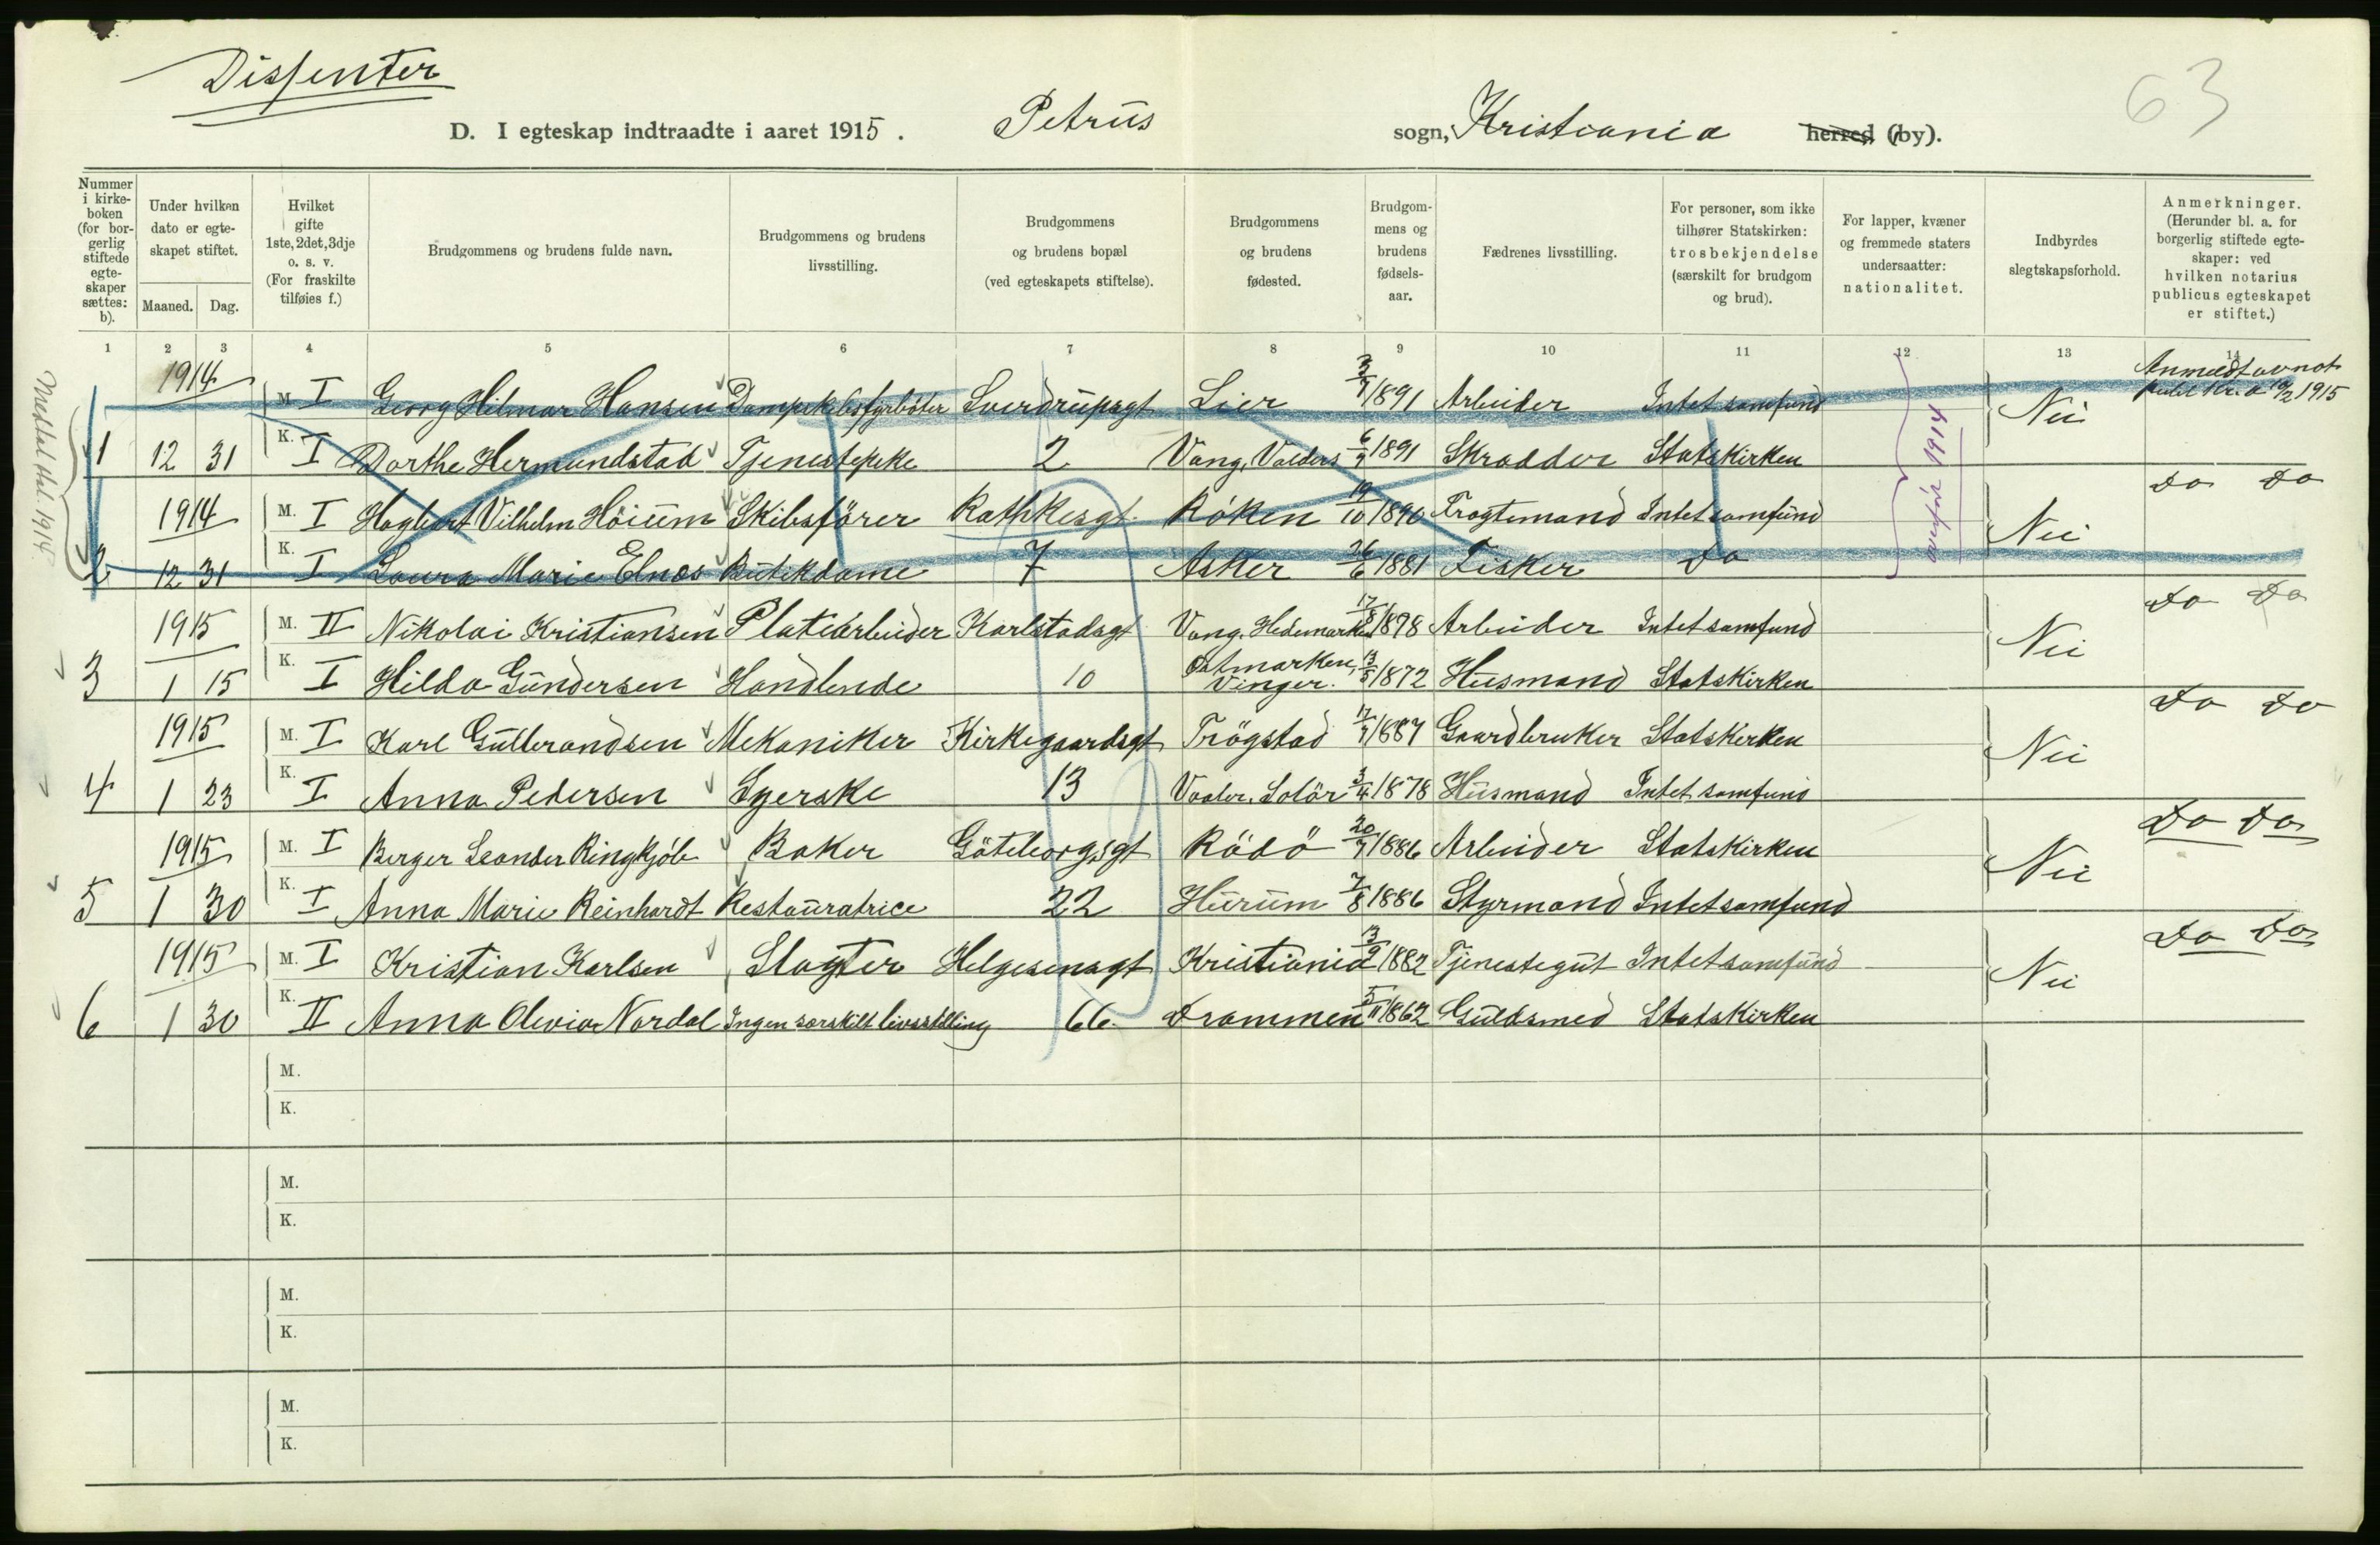 Dissenter
63
D. I egteskap indtraadte i aaret 1915. Petrus sogn, Kristiania herred (by).
Nummer i kirke-boken (for bor-gerlig stiftede egte-skaper sættes: b).
Under hvilken dato er egte-skapet stiftet. Maaned. Dag.
Hvilket gifte 1ste, 2det, 3dje o. s. v. (For fraskilte tilføies f.)
Brudgommens og brudens fulde navn.
Brudgommens og brudens livsstilling.
Brudgommens og brudens bopæl (ved egteskapets stiftelse).
Brudgommens og brudens fødested.
Brudgom-mens og brudens fødsels-aar.
Fædrenes livsstilling.
For personer, som ikke tilhører Statskirken: trosbekjendelse (særskilt for brudgom og brud).
For lapper, kvæner og fremmede staters undersaatter: nationalitet.
Indbyrdes slegtskapsforhold.
Anmerkninger. (Herunder bl. a. for borgerlig stiftede egte-skaper: ved hvilken notarius publicus egteskapet er stiftet.)
1 2 3 4 5 6 7 8 9 10 11 12 13 14
1914 M. I Georg Hilmar Hansen Dampskibsfyrböter Sverdrupsgt Lier 3/7 1891 Arbeider Intet samfund Nei Anmeldt av not. publ. Kr.a 10/2 1915
1 12 31 K. I Dorthe Hermundstad Tjenestepike 2 Vang, Valders 6/9 1891 Skrædder Statskirken
1914 M. I Hagbart Vilhelm Höium Skibsförer Rathkesgt. Röken 19/10 1890 Fragtemand Intet samfund Nei Do Do
2 12 31 K. I Laura Marie Elnæs Butikdame 7 Asker 26/6 1881 Fisker Do
overför 1914
1915 M. II Nikolai Kristiansen Platearbeider Karlstadsgt Vang, Hedemarken 17/8 1878 Arbeider Intet samfund Nei Do Do
3 1 15 K. I Hilda Gundersen Handlende 10 Östmarken, Vinger. 13/5 1872 Husmand Statskirken
1915 M. I Karl Gulbrandsen Mekaniker Kirkegaardsgt Trögstad 17/7 1887 Gaardbruker Statskirken Nei Do Do
4 1 23 K. I Anna Pedersen Syerske 13 Vaaler, Solör 3/4 1878 Husmand Intet samfund
1915 M. I Berger Leander Ringkjöb Baker Göteborgsgt Rödö 20/7 1886 Arbeider Statskirken Nei Do Do
5 1 30 K. I Anna Marie Reinhardt Restauratrice 22 Hurum 7/8 1886 Styrmand Intet samfund
1915 M. I Kristian Karlsen Slagter Helgesensgt Kristiania 13/9 1882 Tjenestegut Intet samfund Nei Do Do
6 1 30 K. II Anna Olivia Nordal Ingen særskilt livsstilling 66. Drammen 5/11 1862 Guldsmed Statskirken
M.
K.
M.
K.
M.
K.
M.
K.